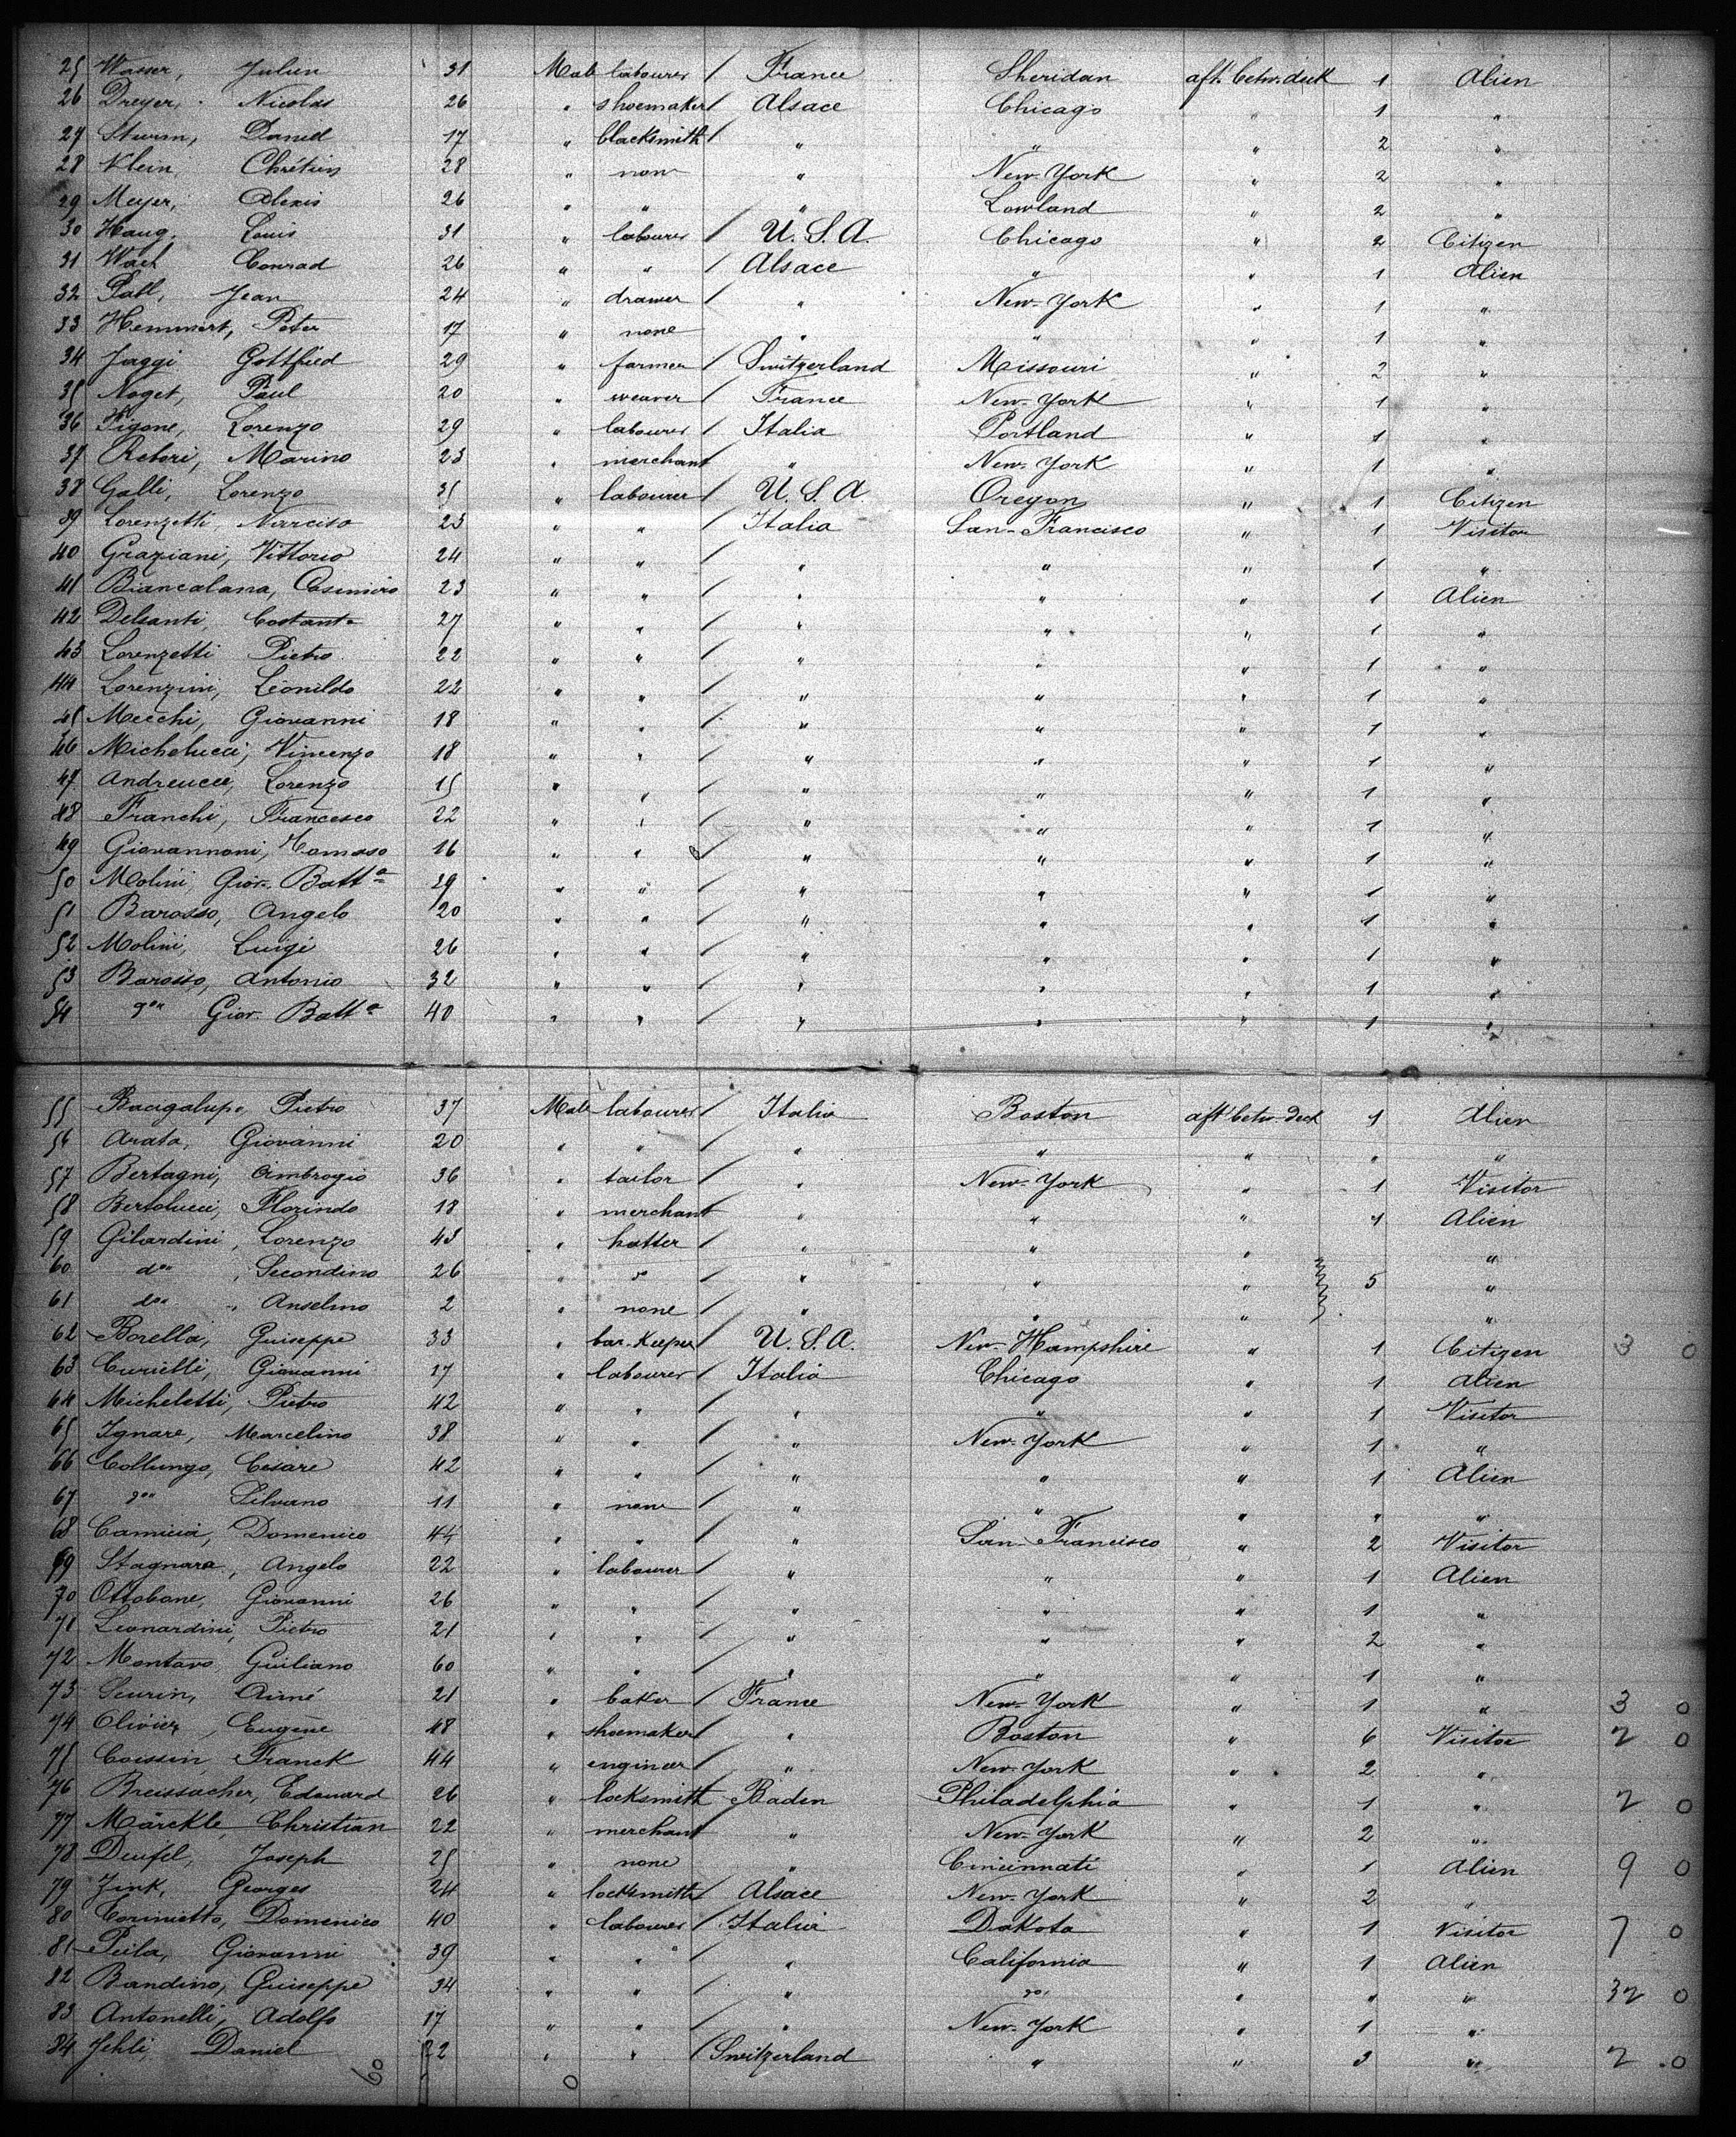 25 Wasser, Julien 31 Male labourer / France Sheridan aft. betw. deck 1 Alien
26 Dreyer, Nicolas 26 " shoemaker / Alsace Chicago " 1 "
27 Sturm, Daniel 17 " blacksmith / " " " 2 "
28 Klein, Chrétien 28 " none " New-York " 2 "
29 Meyer, Alexis 26 " " " Lowland " 2 "
30 Haug, Louis 31 " labourer / U.S.A. Chicago " 2 Citizen
31 Wach Conrad 26 " " / Alsace " " 1 Alien
32 Pabl, Jean 24 " drawer / " New-York " 1 "
33 Hemmert, Peter 17 " none " " " 1 "
34 Jaggi Gottfried 29 " farmer / Switzerland Missouri " 2 "
35 Noget, Paul 20 " weaver / France New-York " 1 "
36 Figone, Lorenzo 29 " labourer / Italia Portland " 1 "
37 Rebori, Marino 23 " merchant " New-York " 1 "
38 Galli, Lorenzo 35 " labourer / U.S.A. Oregon " 1 Citizen
39 Lorenzetti, Narciso 23 " " / Italia San-Francisco " 1 Visitor
40 Graziani, Vittorio 24 " " / " " " 1 "
41 Biancalana, Casimiro 23 " " / " " " 1 Alien
42 Delsanti, Costante 27 " " / " " " 1 "
43 Lorenzetti Pietro 22 " " / " " " 1 "
44 Lorenzini, Léonildo 22 " " / " " " 1 "
45 Mecchi, Giovanni 18 " " / " " " 1 "
46 Michelucci, Vincenzo 18 " " / " " " 1 "
47 Andreucci, Lorenzo 15 " " / " " " 1 "
48 Franchi, Francesco 22 " " / " " " 1 "
49 Giovannoni, Tomaso 16 " " / " " " 1 "
50 Molini, Giov. Batta 29 " " / " " " 1 "
51 Barosso, Angelo 20 " " / " " " 1 "
52 Molini, Luigi 26 " " / " " " 1 "
53 Barosso, Antonio 32 " " / " " " 1 "
54 do Giov. Batta 40 " " / " " " 1 "
55 Bacigalupo Pietro 37 Male labourer / Italia Boston aft betw. deck 1 Alien
56 Arata, Giovanni 20 " " / " " " " "
57 Bertagni, Ambrogio 36 " tailor / " New-York " 1 Visitor
58 Bertolucci, Florindo 18 " merchant " " " 1 Alien
59 Gilardini, Lorenzo 43 " hatter / " " " "
60 do , Secondino 26 " do / " " " 5 "
61 do " Anselmo 2 " none / " " " "
62 Borella, Guiseppe 33 " bar-keeper / U.S.A. New-Hampshire " 1 Citizen 3 0
63 Curielli, Giovanni 17 " labourer / Italia Chicago " 1 Alien
64 Micheletti, Pietro 42 " " / " " " 1 Visitor
65 Ignare, Marcelino 38 " " / " New-York " 1 "
66 Collungo, Cesare 42 " " / " " " 1 Alien
67 do Silvano 11 " none / " " " " "
68 Camicia, Domenico 44 " " / " San-Francisco " 2 Visitor
69 Stagnara, Angelo 22 " labourer / " " " 1 Alien
70 Ottobone, Giovanni 26 " " / " " " 1 "
71 Leonardini, Pietro 21 " " / " " " 2 "
72 Montavo Guiliano 60 " " / " " " 1 "
73 Seurin, Aimé 21 " baker / France New-York " 1 " 3 0
74 Olivier, Eugène 48 " shoemaker / " Boston " 6 Visitor 2 0
75 Coissin, Franck 44 " engineer / " New-York " 2 "
76 Breissacher, Edouard 26 " locksmith Baden Philadelphia " 1 " 2 0
77 Märckle Christian 22 " merchant " New-York " 2 "
78 Deufel, Joseph 25 " none " Cincinnati " 1 Alien 9 0
79 Jink, Georges 24 " locksmith / Alsace New-York " 2 "
80 Corinietto, Domenico 40 " labourer / Italia Dakota " 1 Visitor 7 0
81 Peila, Giovanni 39 " " / " California " 1 Alien
82 Bandino, Guiseppe 34 " " / " do " " " 32 0
83 Antonelli, Adolfo 17 " " / " New-York " 1 "
84 Jehli, Daniel 22 " " / Switzerland " " 3 " 2 0
60 0